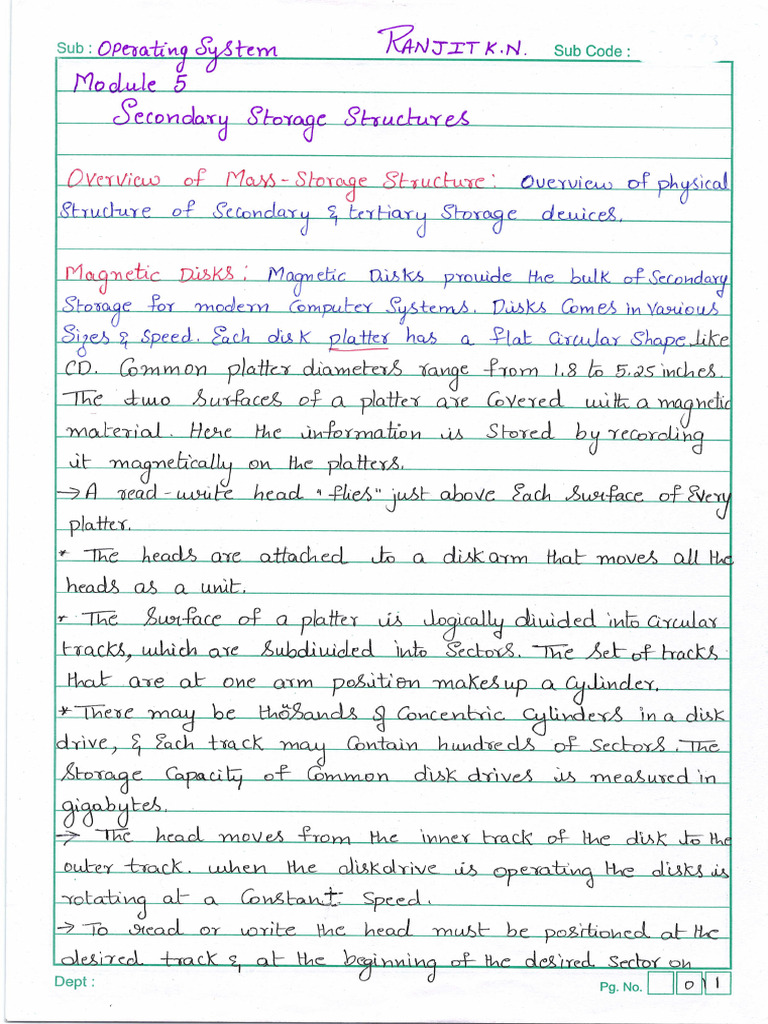 Sub : Operating System RANJIT K.N. Sub Code :
Module 5
Secondary Storage Structures
Overview of Mass-Storage Structure: Overview of physical
Structure of Secondary & tertiary Storage devices.
Magnetic Disks: Magnetic Disks provide the bulk of Secondary
Storage for modern Computer Systems. Disks Comes in various
Sizes & Speed. Each disk platter has a flat Circular Shape. like
CD. Common platter diameters range from 1.8 to 5.25 inches.
The two surfaces of a platter are Covered with a magnetic
material. Here the information is Stored by recording
it magnetically on the platters.
→ A read-write head "flies" just above Each Surface of Every
platter.
* The heads are attached to a disk arm that moves all the
heads as a unit.
* The Surface of a platter is logically divided into Circular
tracks, which are subdivided into Sectors. The set of tracks
that are at one arm position makes up a Cylinder.
* There may be thousands of Concentric Cylinders in a disk
drive, & Each track may Contain hundreds of Sectors. The
Storage Capacity of Common disk drives is measured in
gigabytes.
→ The head moves from the inner track of the disk to the
outer track. when the diskdrive is operating the disks is
rotating at a Constant Speed.
→ To read or write the head must be positioned at the
desired track & at the beginning of the desired sector on
Dept : Pg. No. 0 1